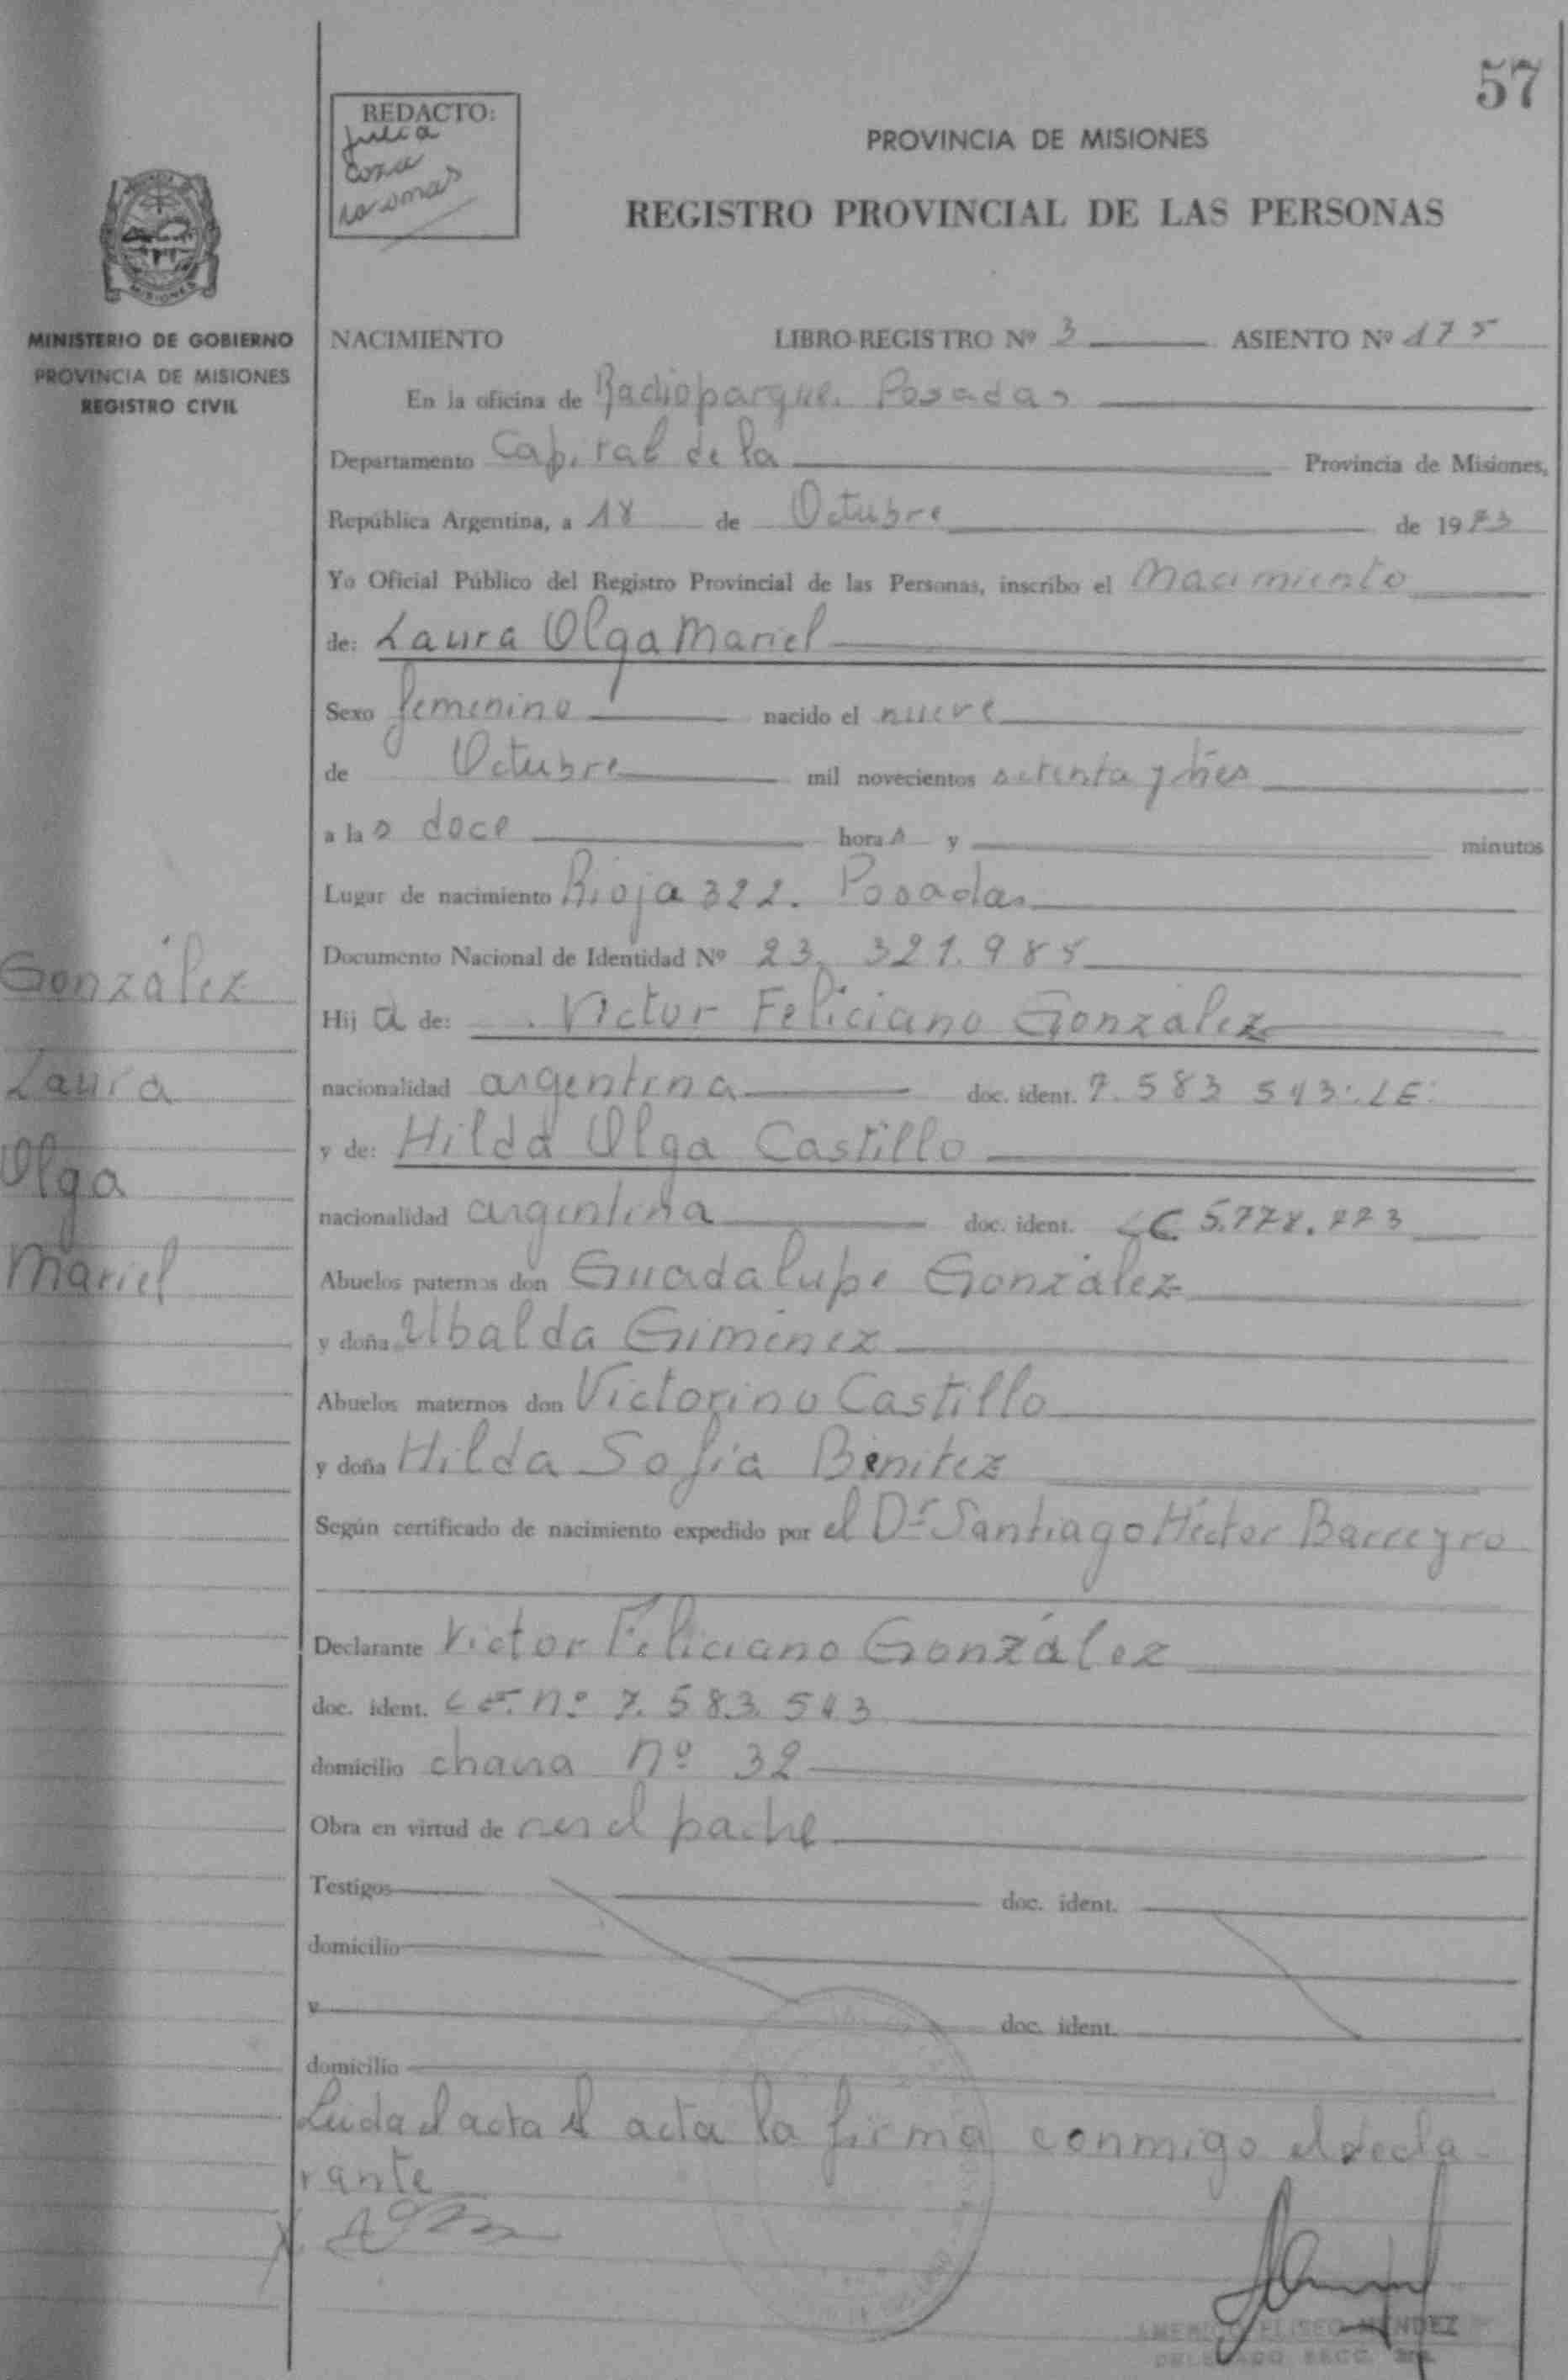 57
REDACTO:
Julia
PROVINCIA DE MISIONES
REGISTRO PROVINCIAL DE LAS PERSONAS
MISIONES
MINISTERIO DE GOBIERNO
PROVINCIA DE MISIONES
REGISTRO CIVIL
NACIMIENTO LIBRO-REGISTRO Nº 3 ASIENTO Nº 175
En la oficina de Radioparque. Posadas
Departamento Capital de la Provincia de Misiones,
República Argentina, a 18 de Octubre de 1973
Yo Oficial Público del Registro Provincial de las Personas, inscribo el Nacimiento
de: Laura Olga Mariel
Sexo femenino nacido el nueve
de Octubre mil novecientos setenta y tres
a las doce horas y minutos
Lugar de nacimiento Rioja 322. Posadas
Documento Nacional de Identidad Nº 23. 321.985
González
Laura
Olga
Mariel
Hija de: Victor Feliciano González
nacionalidad argentina doc. ident. 7.583 543 LE
y de: Hilda Olga Castillo
nacionalidad argentina doc. ident. LC 5.778.773
Abuelos paternos don Guadalupe González
y doña Ubalda Giménez
Abuelos maternos don Victorino Castillo
y doña Hilda Sofía Benitez
Según certificado de nacimiento expedido por el Dr Santiago Héctor Barreyro
Declarante Victor Feliciano González
doc. ident. LE. Nº 7.583.543
domicilio chacra Nº 32
Obra en virtud de ser el padre
Testigos doc. ident.
domicilio
y doc. ident.
domicilio
Leida el acta el acta la firma conmigo el decla-
rante
ELISEO MENDEZ
DELEGADO SECC.